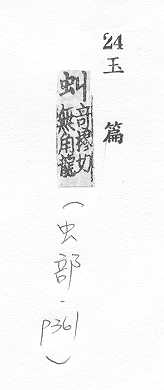 24玉篇
虯奇樛切無角龍
(虫部．p361)